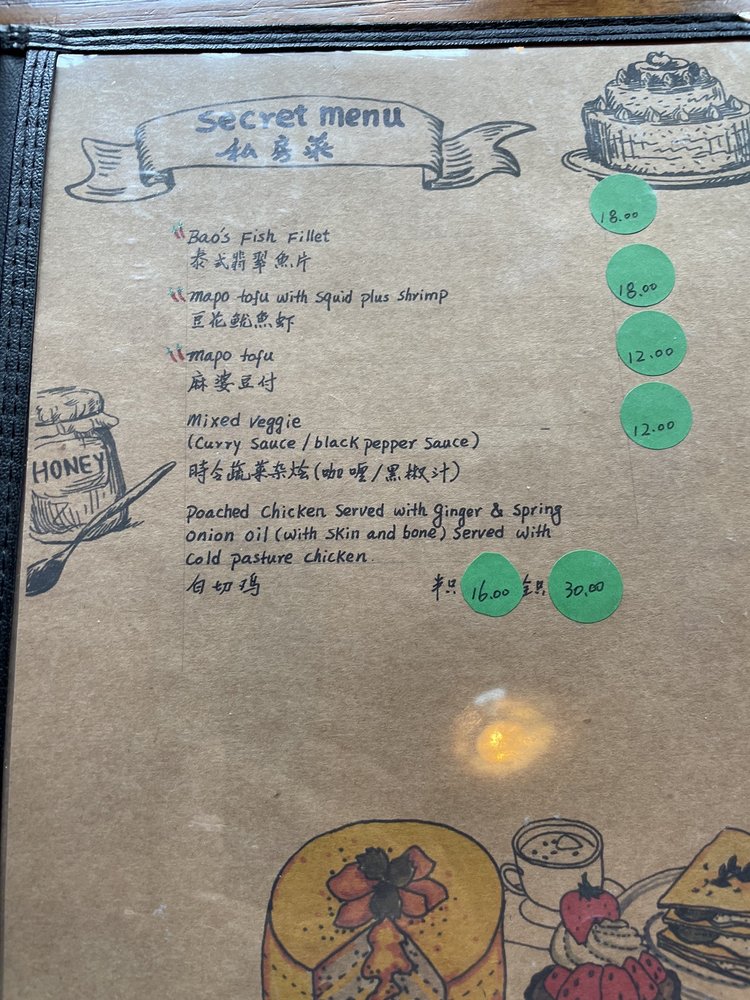 Secret menu
私房菜
Bao's Fish Fillet
18.00
泰式翡翠魚片
mapo tofu with squid plus shrimp
18.00
豆花魷魚虾
mapo tofu
12.00
麻婆豆付
mixed veggie
12.00
(Curry sauce / black pepper sauce)
時令蔬菜杂烩(咖喱/黑椒汁)
HONEY
Poached Chicken Served with ginger & spring
onion oil (with skin and bone) Served with
Cold pasture chicken.
白切 半只 16.00 全只 30.00